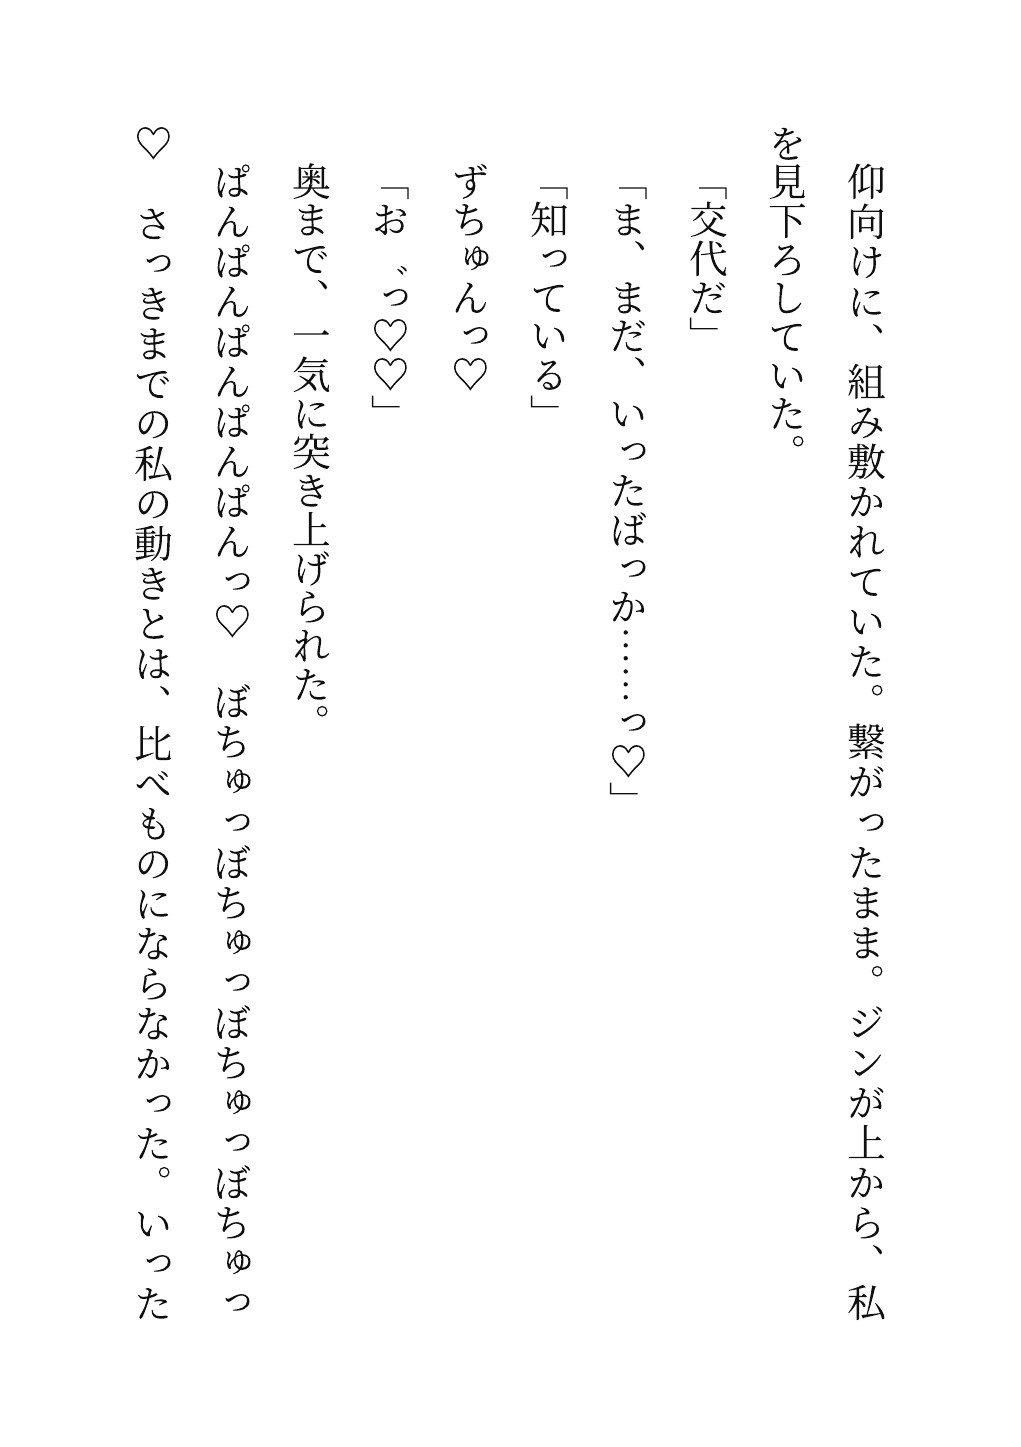 仰向けに、組み敷かれていた。繋がったまま。ジンが上から、私
を見下ろしていた。
「交代だ」
「ま、まだ、いったばっか……っ♡」
「知っている」
ずちゅんっ♡
「お゛っ♡♡」
奥まで、一気に突き上げられた。
ぱんぱんぱんぱんぱんっ♡　ぼちゅっぼちゅっぼちゅっぼちゅっ
♡　さっきまでの私の動きとは、比べものにならなかった。いった